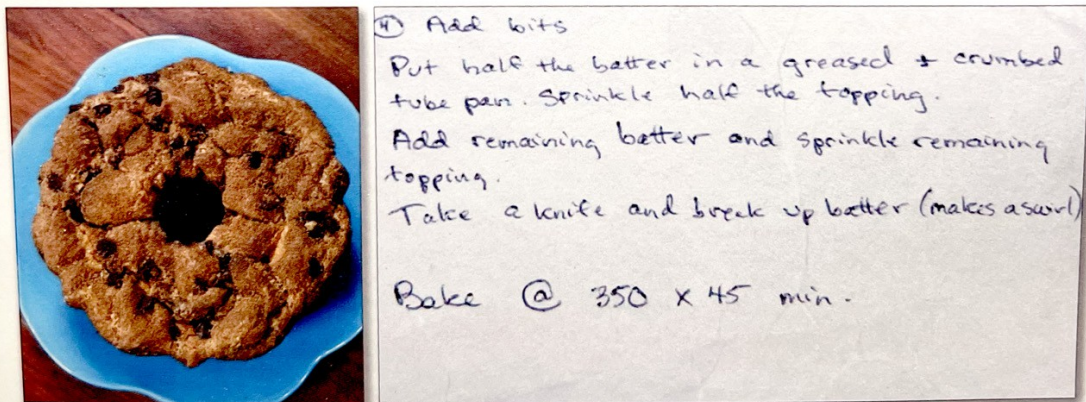 ④ Add bits
Put half the batter in a greased + crumbed
tube pan. Sprinkle half the topping.
Add remaining batter and sprinkle remaining
topping.
Take a knife and break up batter (makes a swirl)
Bake @ 350 x 45 min.